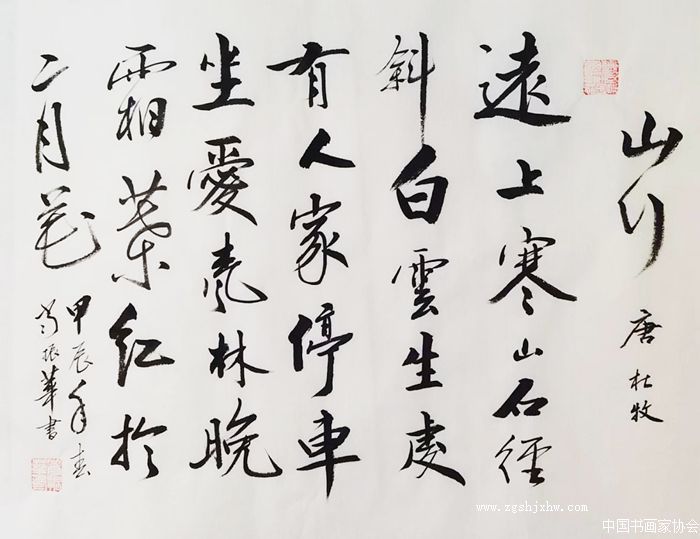 山行
唐 杜牧
遠上寒山石徑
斜白雲生處
有人家停車
坐愛楓林晚
霜葉紅於
二月花
甲辰年春
振華書
www.zgshjxhw.com
中国书画家协会